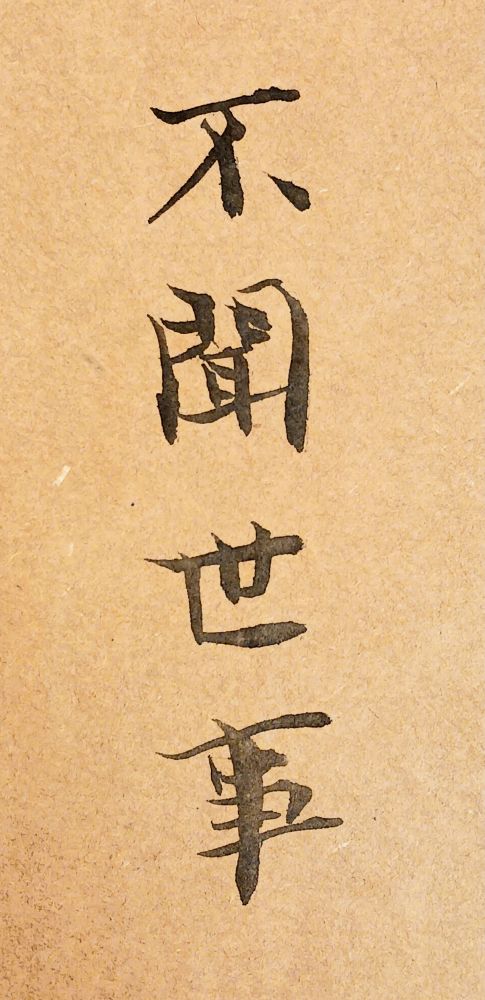 不聞世事